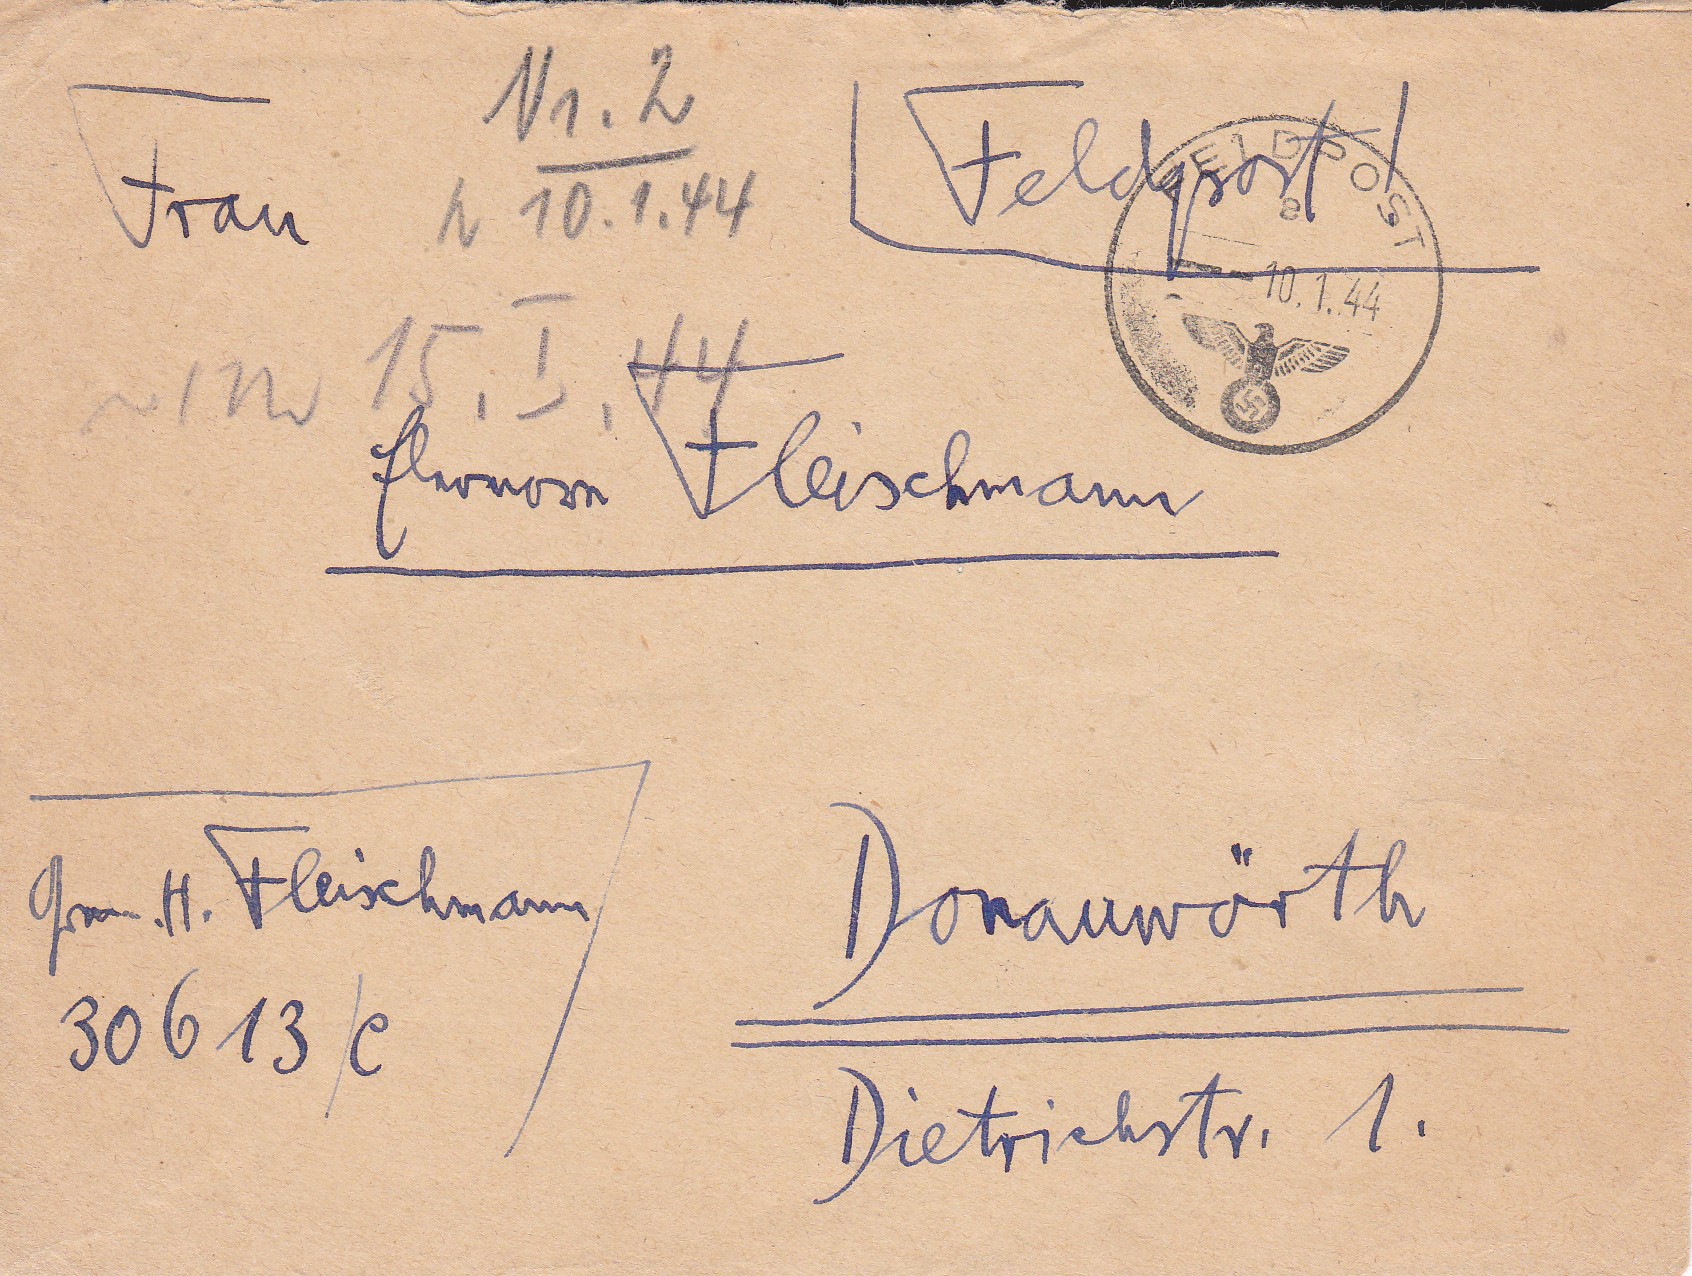 Frau
Nr. 2
10.1.44
Feldpost!
FELDPOST
a
10.1.44
15.I.44
Eleonore Fleischmann
H. Fleischmann
30613/c
Donauwörth
Dietrichstr. 1.